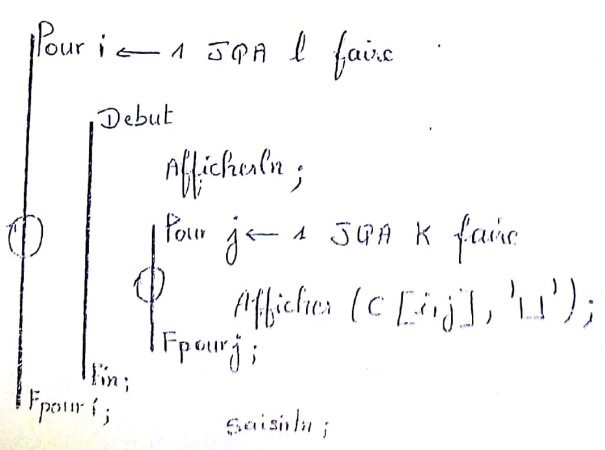 Pour i ← 1 JQA l faire
Debut
Afficherln ;
Pour j ← 1 JQA K faire
Afficher (C [i,j], '⊔') ;
Fpour j ;
Fin ;
Fpour i ;
Saisirln ;